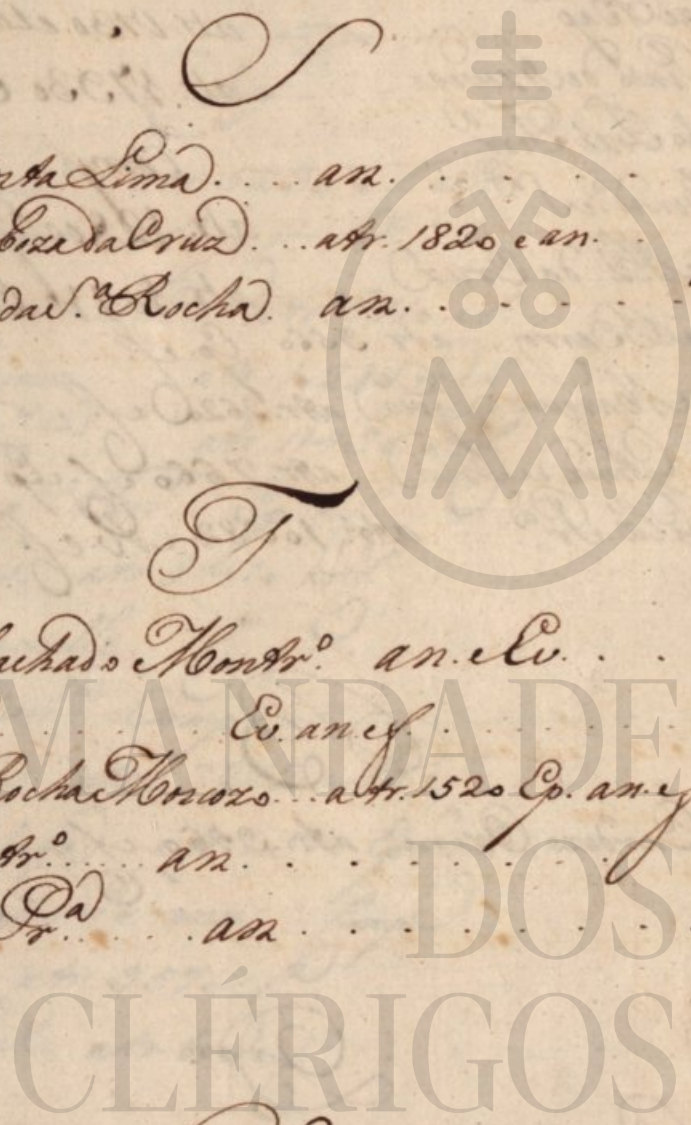 S
nta Lima. . . . an. . . . .
Roza da Cruz. . . atr. 1820 e an. .
da S.ª Rocha. an. . . . . .
T
achado Montr.º an. e Ev. . .
. . . . . . . Ev. an. e f. . . . . .
Rocha Morcozo. . . atr. 1520 Ep. an. e f
tr.º . . . . . an. . . . . . .
Pr.ª . . . . . an . . . . . . .
MANDADE
DOS
CLÉRIGOS